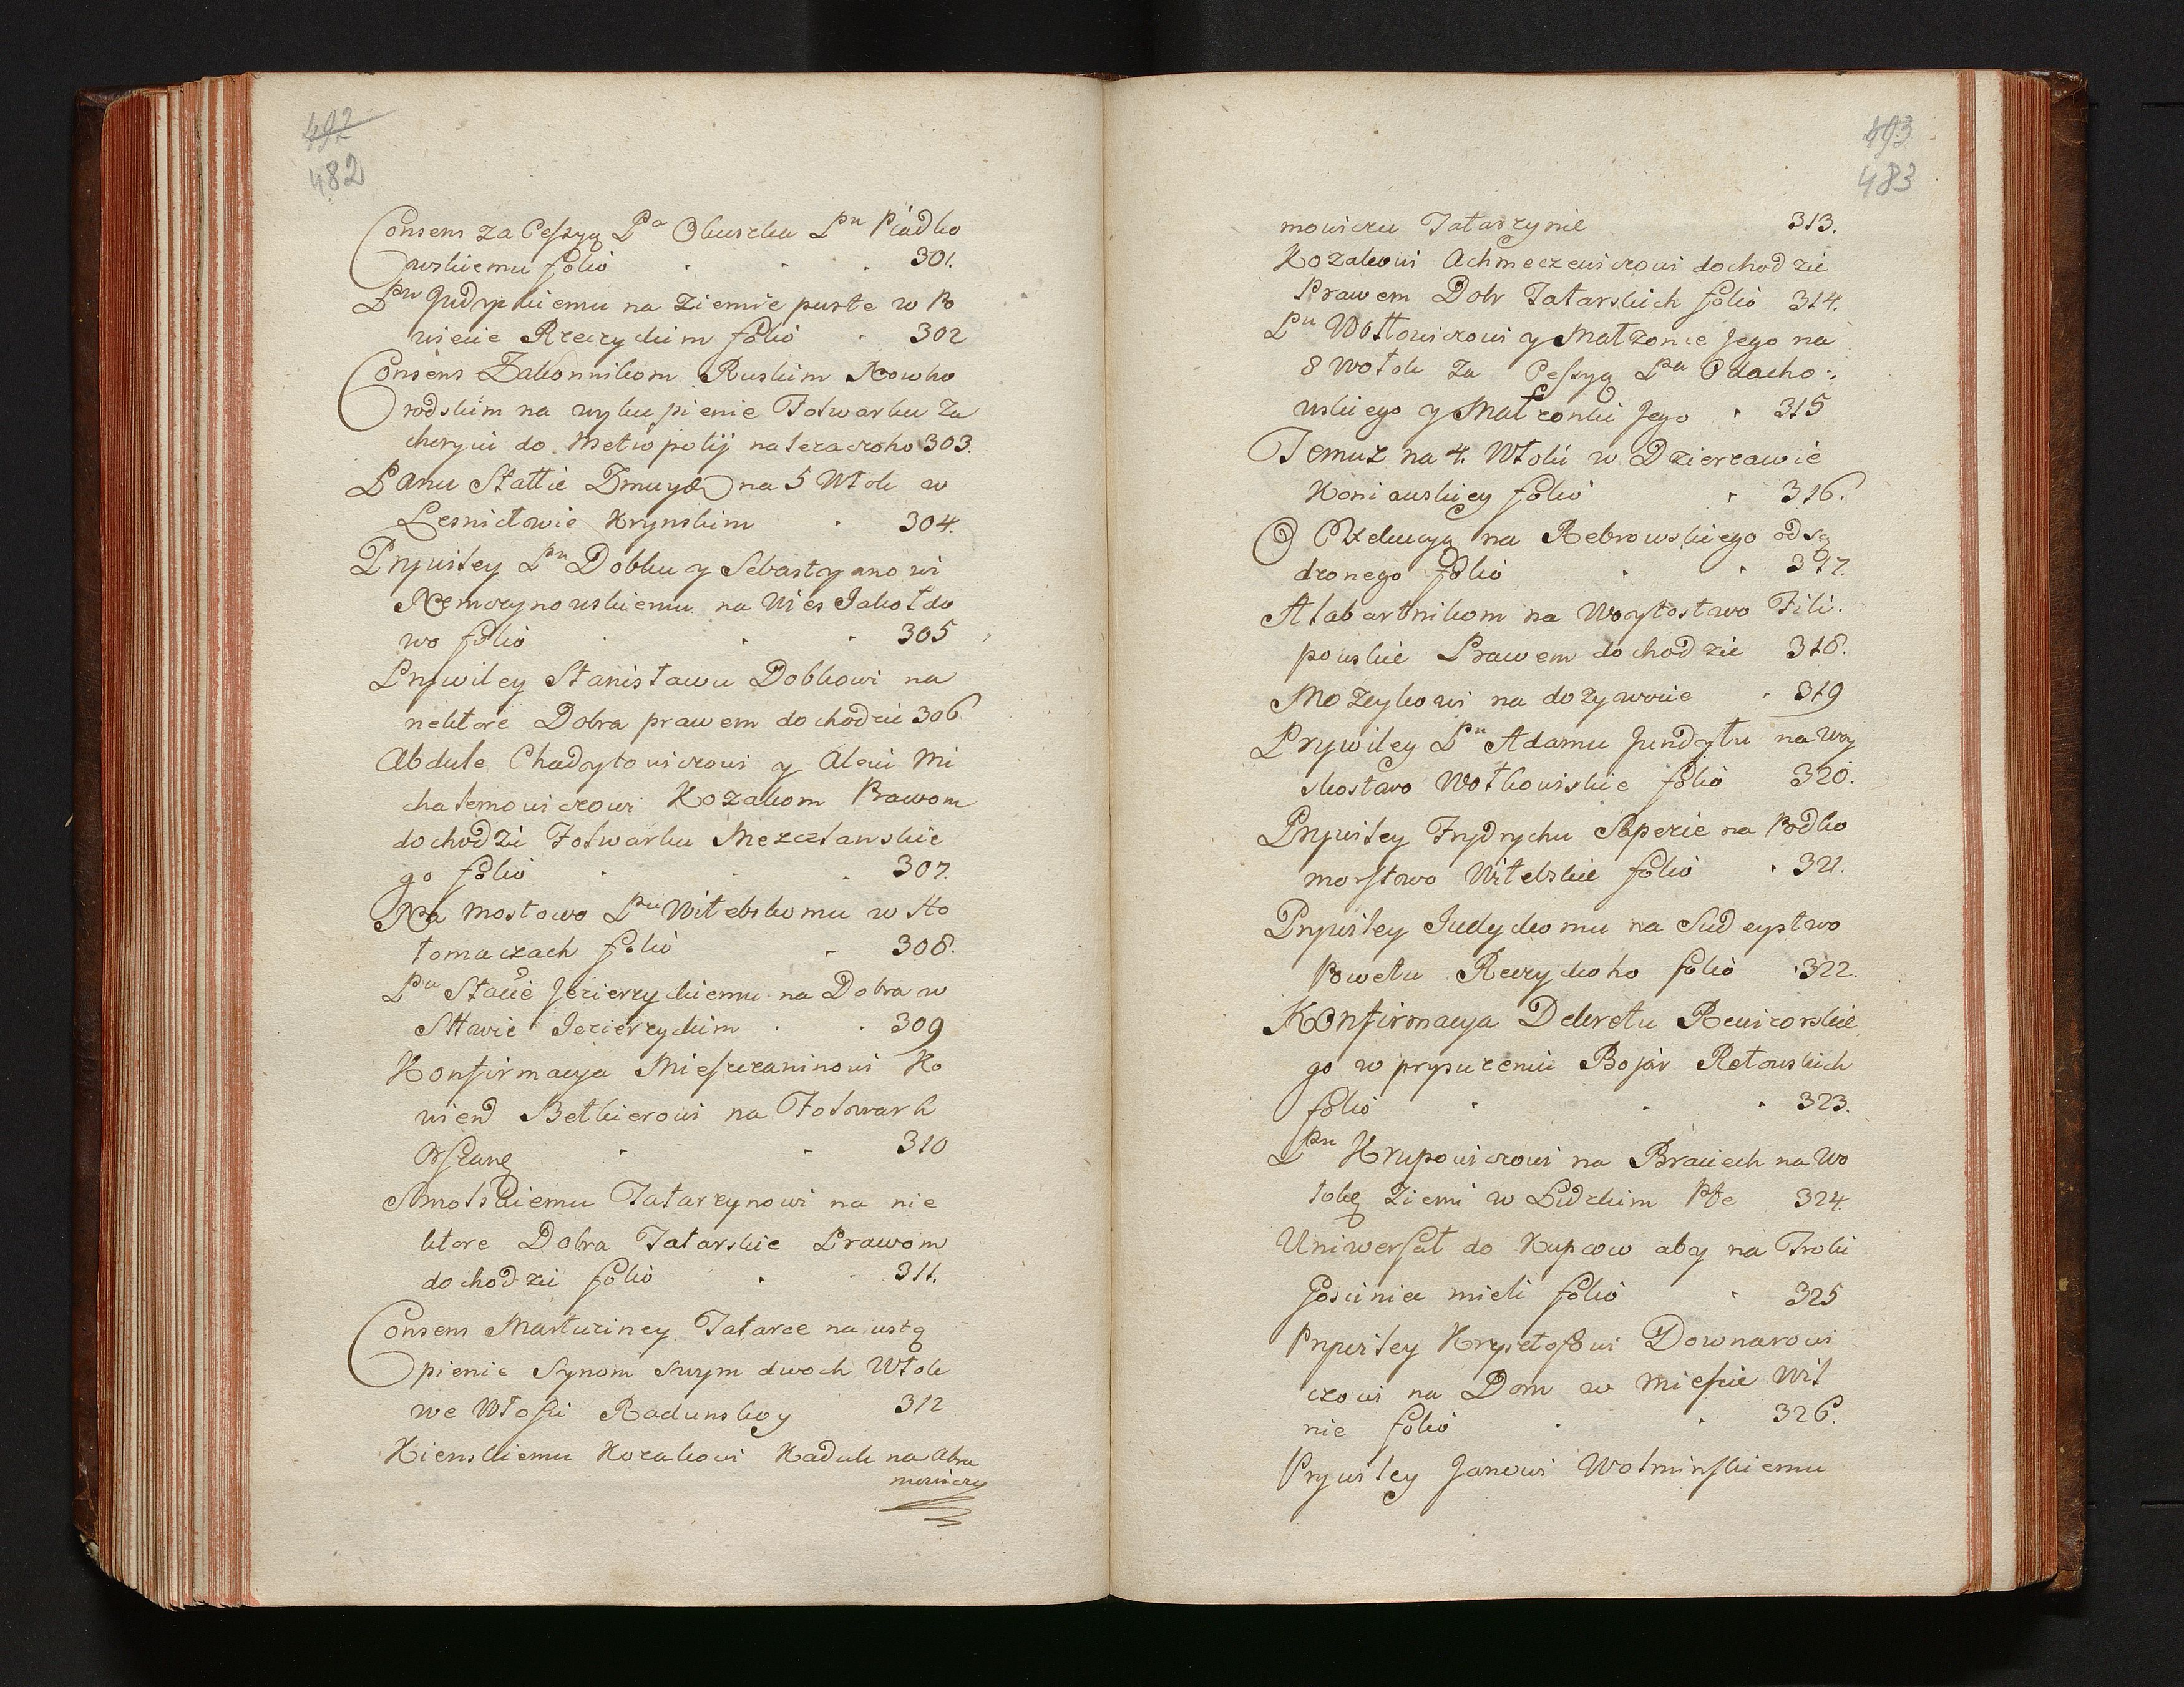 492
482
Consens za Cessyą Pa Okuszka Pnu Piadko
wskiemu folio 301.
Pnu Gudyckiemu na Ziemie puste w Po
wiecie Rzeczyckim folio 302
Consens Zakonnikom Ruskim Nowho
rodskim na wykupienie Folwarku Za
choryni do Metropolij należaczoho 303.
Panu Stattie Zmuyd na 5 Włok w
Lesnictowie Krynskim 304.
Prywiley Pnu Dobku y Sebastyanowi
Nemczynowskiemu na Wies Jakołdo
wo folio 305
Prywiley Stanisławu Dobkowi na
nektore Dobra prawem dochodzie 306
Abdule Chadytowiczowi y Aleui Mi
chalemowiczowi Kozakom Prawom
dochodzi Folwarku Mezczlanskie
go folio 307.
Na Mostowo Pnu Witebskomu w Sto
łomaczach folio 308.
Pnu Stacie Jezierzyckiemu na Dobra w
Sttawie Jezierzyckim 309
Konfirmacya Miesczaninowi Ko
wien Betkierowi na Folwark
Wszanę 310
Smolskiemu Tatarzynowi na nie
ktore Dobra Tatarskie Prawom
dochodzi folio 311.
Consens Marturiney Tatarce na ustą
pienie Synom swym dwoch Włok
we Włości Radunskoy 312
Kienskiemu Kozakowi Kaduk na Abra
mowiczy
493
483
mowiczu Tatarzynie 313.
Kozakowi Achmeczewiczowi dochodzie
Prawem Dobr Tatarskich folio 314.
Pnu Wołłowiczowi y Małzonce Jego na
8 Włok za Cessyą Pa Odacho
wskiego y Małzonki Jego 315
Temuz na 4. Włoki w Dzierzawie
Koniawskiey folio 316.
Exekucya na Rebrowskiego odsą
dzonego folio 317.
Alabartnikom na Woytostwo Fili.
powskie Prawem dochodzie 318.
Mozeykowi na dozywocie 319
Prywiley Pnu Adamu Jundyłu na Woy
skostwo Wołkowiskie folio 320.
Prywiley Frydrychu Sapezie na Podko
morstwo Witebskie folio 321.
Prywiley Judyckomu na Sudeystwo
Powetu Reczyckoho folio 322.
Konfirmacya Dekretu Rewizorskie
go w prypuczeniu Bojar Retowskich
folio 323.
Pnu Krupowiczowi na Braciech na Wo
łokę Ziemi w Lidzkim Pte 324.
Uniwersał do Kupcow aby na Troki
Gosciniec mieli folio 325
Prywiley Krysztofowi Downarowi
czowi na Dom w Miescie Wil
nie folio 326.
Prywiley Janowi Wolminskiemu